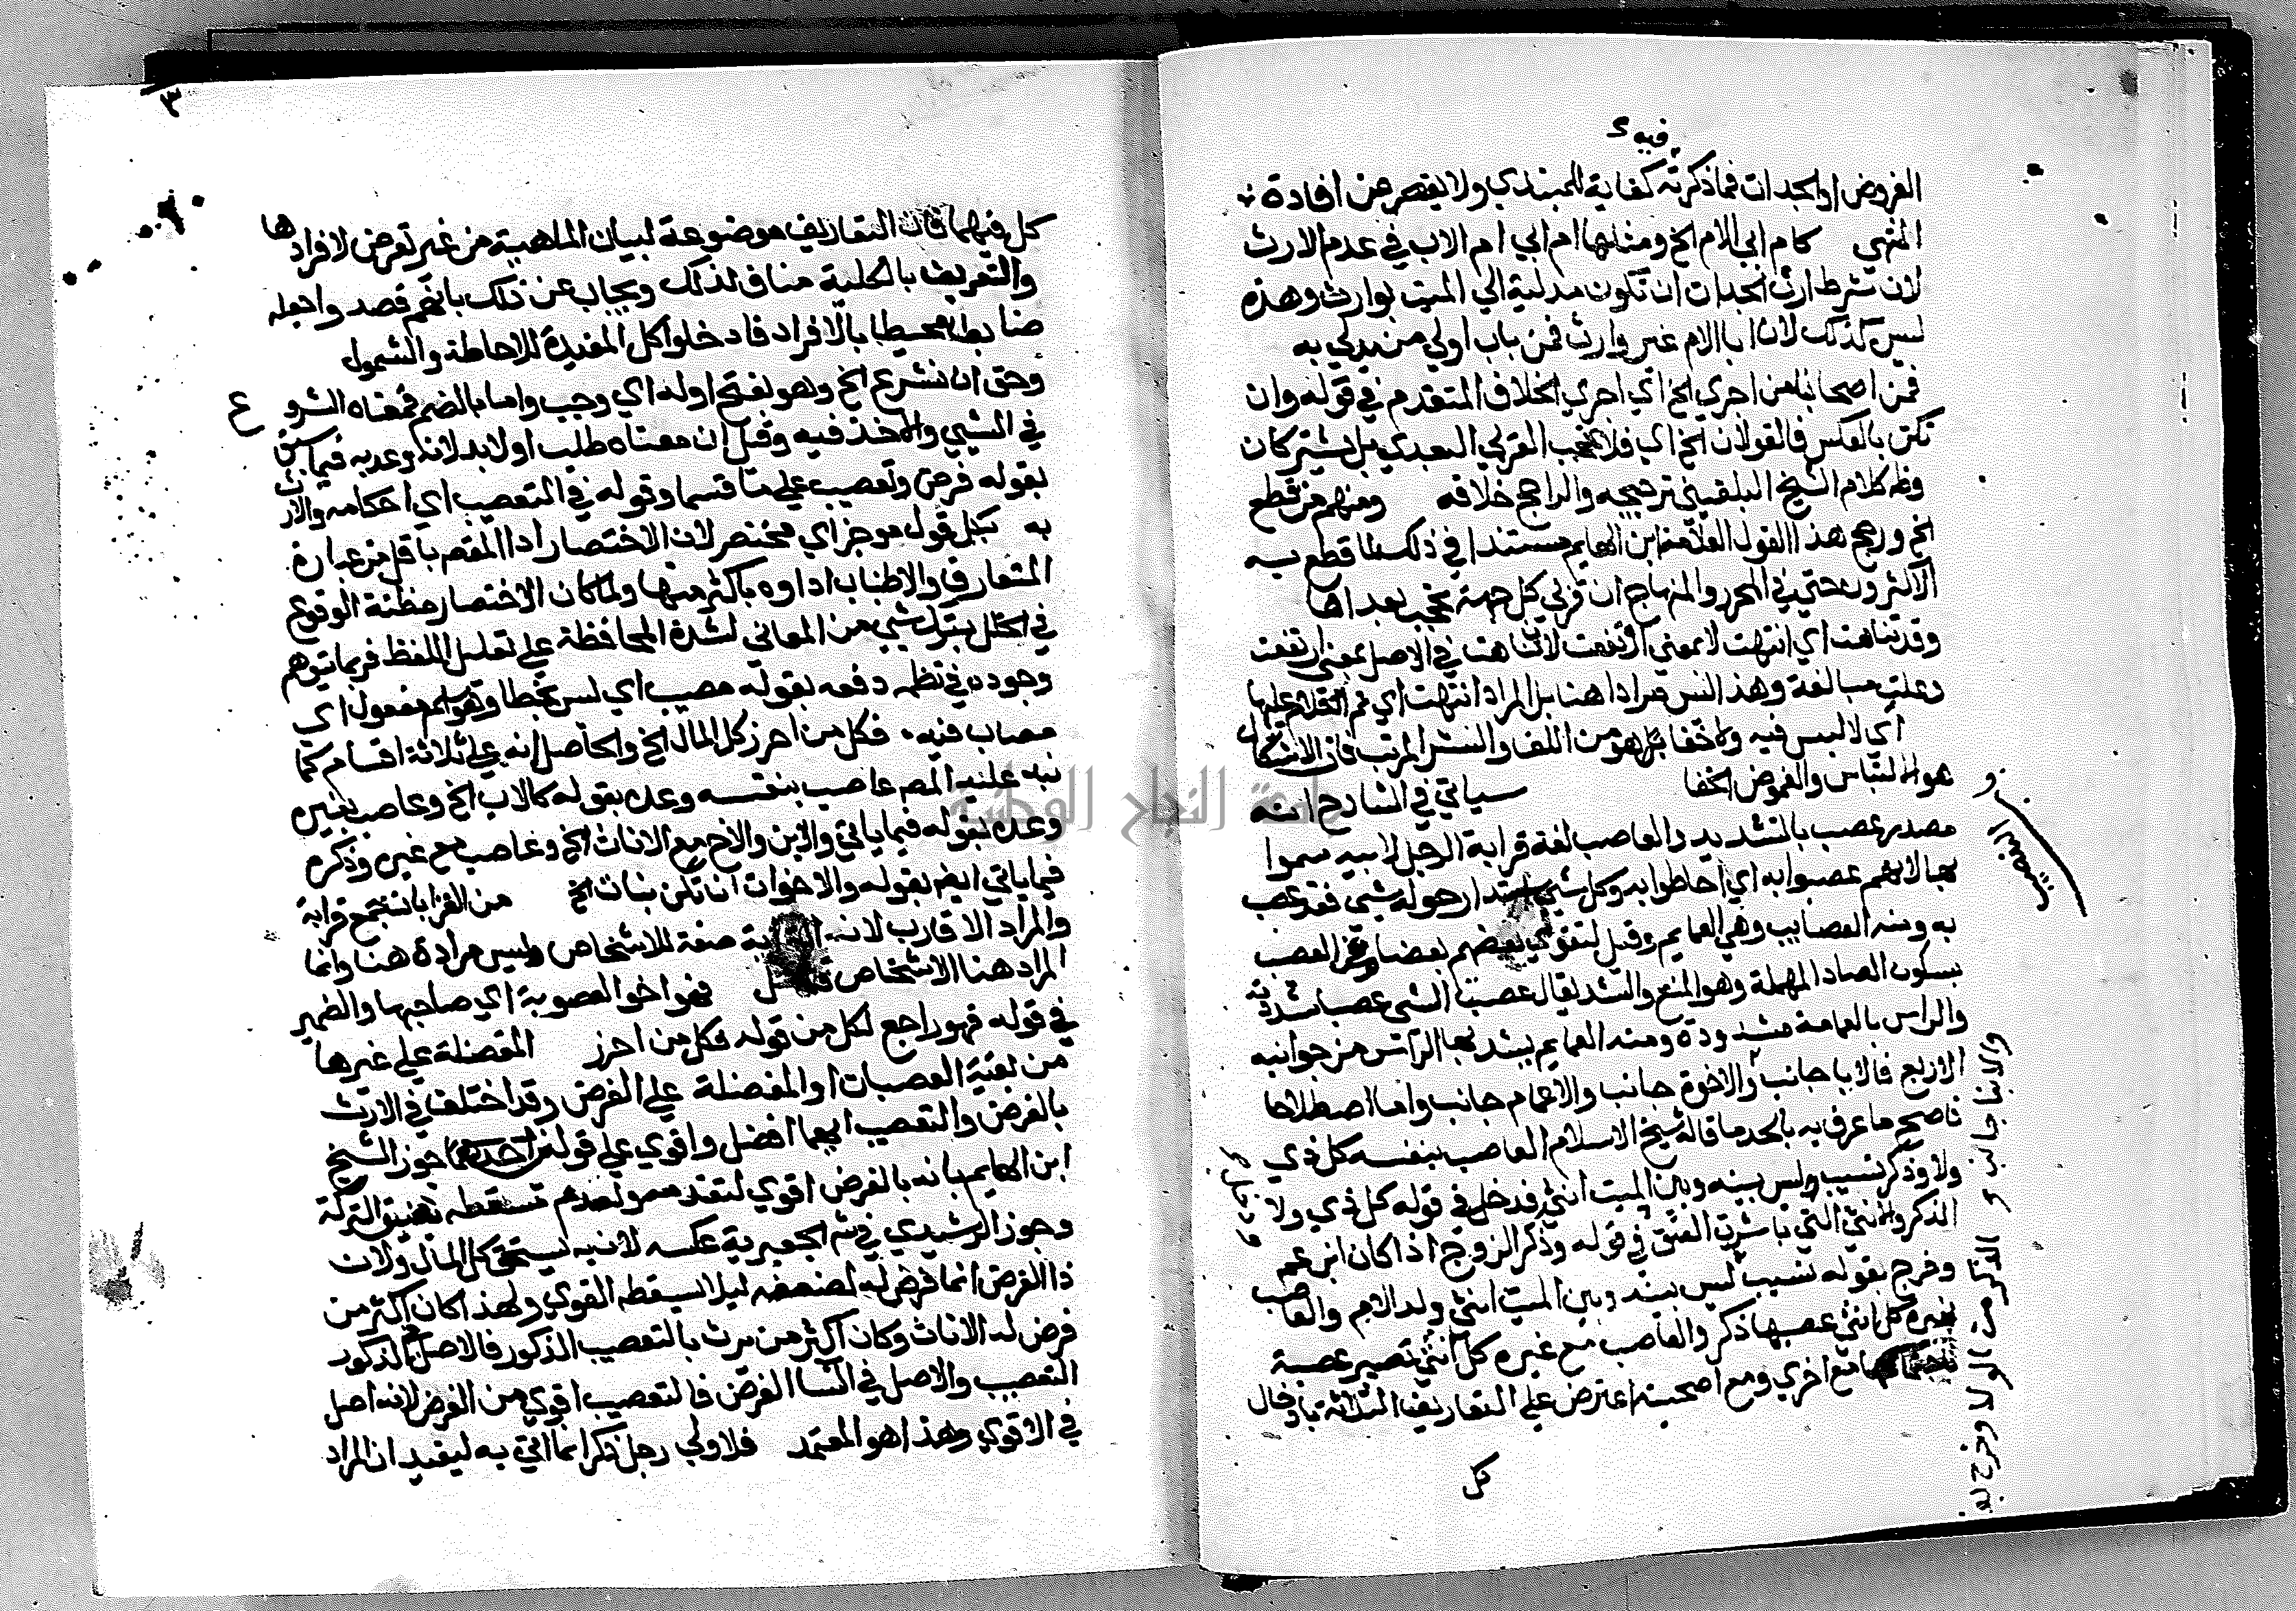 فيه
الفروض او الجدات فما ذكرته كفاية للمبتدي ولا يقصر عن افادة
المنتهي كام ابي الام الخ ومثلها ام ابي ام الاب في عدم الارث
لان شرط ارث الجدات ان تكون مدلية الي الميت بوارث وهذه
ليس كذلك لان ابا الام غير وارث فمن باب اولي من يدلي به
فمن اصحابنا من اجري الخ اي اجري الخلاف المتقدم في قوله وان
تكن بالعكس فالقولان الخ اي فلا تحجب القربي البعدي بل يشتركان
وظ كلام الشيخ البلقيني ترجيحه والراجح خلافه ومنهم من قطع
الخ ورجح هذا القول العلامة ابن الهايم مستندا في ذلك لما قطع به
الاكثرون حتي في المحرر والمنهاج ان قربي كل جهة تحجب بعداها
وقد تناهت اي انتهت لا بمعني ارتفعت لان تناهت في الاصل بمعني ارتفعت
وعلت مبالغة وهذا ليس مرادا هنا بل المراد انتهت اي تم الكلام عليها
اي لا لبس فيه ولا خفا بل هو من اللف والنشر المرتب فان الاشكال
هو الالتباس والغموض الخفا سياتي في الشارح انه
مصدر عصب بالتشديد والعاصب لغة قرابة الرجل لابيه سموا
بها لانهم عصبوا به اي احاطوا به وكل شي استدار حوله شي فقد عصب
به ومنه العصايب وهي العمايم وقيل لتقوي بعضهم بعضا من العصب
بسكون الصاد المهملة وهو المنع والشد يقال عصبت الشي عصبا شددته
والراس بالعمامة مشدودة ومنه العمايم يشد بها الراس من جوانبه
الاربع فالابا جانب والاخوة جانب والاعمام جانب واما اصطلاحا
فاصح ما عرف به بالحد ما قاله شيخ الاسلام العاصب بنفسه كل ذي
ولا وذكر نسيب وليس بينه وبين الميت انثي فدخل في قوله كل ذي ولا
الذكر والانثي التي باشرت العتق في قوله وذكر الزوج اذا كان ابن عم
وخرج بقوله نسيب ليس بينه وبين الميت انثي ولد الام والعاصب
بغيره كل انثي عصبها ذكر والعاصب مع غيره كل انثي تصير عصبة
باجتماعها مع اخري ومع اصحيته اعترض علي التعاريف الثلاثة بادخال
كل
والابنا جانب
٣
كل فيها فان التعاريف موضوعة لبيان الماهية من غير تعرض لافرادها
والتعريف بالكلية مناف لذلك ويجاب عن ذلك بانهم قصدوا جعله
ضابطا محيطا بالافراد فادخلوا كل المفيدة للاحاطة والشمول
وحق ان نشرع الخ وهو بفتح اوله اي وجب واما بالضم فمعناه الشروع
في الشي والاخذ فيه وقيل ان معناه طلب اولا بد لانه وعد به فيما سبق
بقوله فرض وتعصيب علي ما قسما وقوله في التعصيب اي احكامه والارث
به بكل قول موجز اي مختصر لان الاختصار اداء المقص باقل من عبارة
المتعارف والاطناب اداوه باكثر منها ولما كان الاختصار مظنة الوقوع
في الخلل بترك شي من المعاني لشدة المحافظة علي تقليل اللفظ فربما يتوهم
وجوده في نظمه دفعه بقوله مصيب اي ليس بخطا وهو اسم مفعول اي
مصاب فيه فكل من احرز كل المال الخ والحاصل انه علي ثلاثة اقسام كما
نبه عليه المص عاصب بنفسه وعده بقوله كالاب الخ وعاصب بغيره
وعده بقوله فيما ياتي والابن والاخ مع الاناث الخ وعاصب مع غيره وذكره
فيما ياتي ايضا بقوله والاخوات ان تكن بنات الخ من القرابات جمع قرابة
والمراد الاقارب لان القرابة صفة للاشخاص وليس مرادة هنا وانما
المراد هنا الاشخاص فهو اخو العصوبة اي صاحبها والضمير
في قوله فهو راجع لكل من قوله فكل من احرز المفضلة علي غيرها
من بقية العصبات او المفضلة علي الفرض وقد اختلف في الارث
بالفرض والتعصيب ايهما افضل واقوي علي قولين احدهما جوز الشيخ
ابن الهايم بانه بالفرض اقوي لتقدمه ولعدم تسقطه بضيق التركة
وجوز الرشيدي في شم الجعبرية عكسه لانه به يستحق كل المال ولان
ذا الفرض انما فرض له لضعفه ليلا يسقطه القوي ولهذا كان اكثر من
فرض له الاناث وكان اكثر من يرث بالتعصيب الذكور فالاصل في الذكور
التعصيب والاصل في النسا الفرض فالتعصيب اقوي من الفرض لانه اصل
في الاقوي وهذا هو المعتمد فلاولي رجل ذكر انما اتي به ليفيد ان المراد